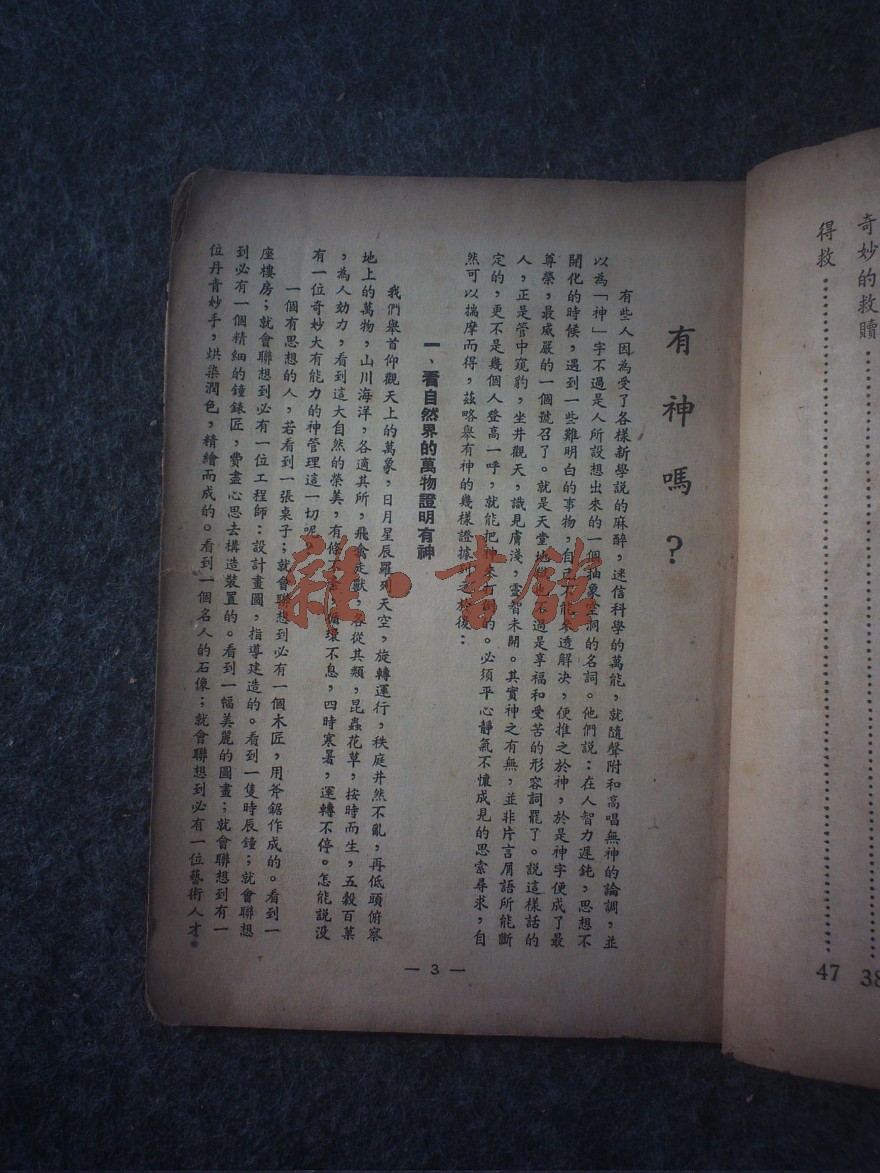 奇妙的救贖
38
得救
47
有神嗎？
有些人因為受了各樣新學説的麻醉，迷信科學的萬能，就隨聲附和高唱無神的論調，並
以為「神」字不過是人所設想出來的一個抽象空洞的名詞。他們説：在人智力遲鈍，思想不
開化的時候，遇到一些難明白的事物，自己不能參透解决，便推之於神，於是神字便成了最
尊榮，最威嚴的一個號召了。就是天堂地獄也不過是享福和受苦的形容詞罷了。説這樣話的
人，正是管中窺豹，坐井觀天，識見膚淺，靈智未開。其實神之有無，並非片言屑語所能斷
定的，更不是幾個人登高一呼，就能把神本的。必須平心靜氣不懷成見的思索尋求，自
然可以揣摩而得，茲略舉有神的幾樣證據於後：
一、看自然界的萬物證明有神
我們舉首仰觀天上的萬象，日月星辰羅列天空，旋轉運行，秩庭井然不亂，再低頭俯察
地上的萬物，山川海洋，各適其所，飛禽走獸，各從其類，昆蟲花草，按時而生，五穀百菓
，為人効力，看到這大自然的榮美，有條不，循環不息，四時寒暑，運轉不停。怎能説没
有一位奇妙大有能力的神管理這一切呢。
一個有思想的人，若看到一張桌子；就會聯想到必有一個木匠，用斧鋸作成的。看到一
座樓房；就會聯想到必有一位工程師：設計畫圖，指導建造的。看到一隻時辰鐘；就會聯想
到必有一個精細的鐘錶匠，費盡心思去構造裝置的。看到一幅美麗的圖畫；就會聯想到有一
位丹青妙手，烘染潤色，精繪而成的。看到一個名人的石像；就會聯想到必有一位藝術人才。
— 3 —
雜·書館